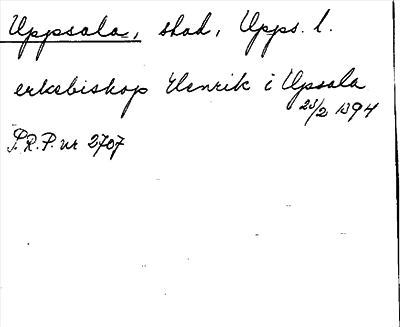 Uppsala, stad, Upps. l.
erkebiskop Henrik i Upsala
23/2 1394
S.R.P. nr 2707